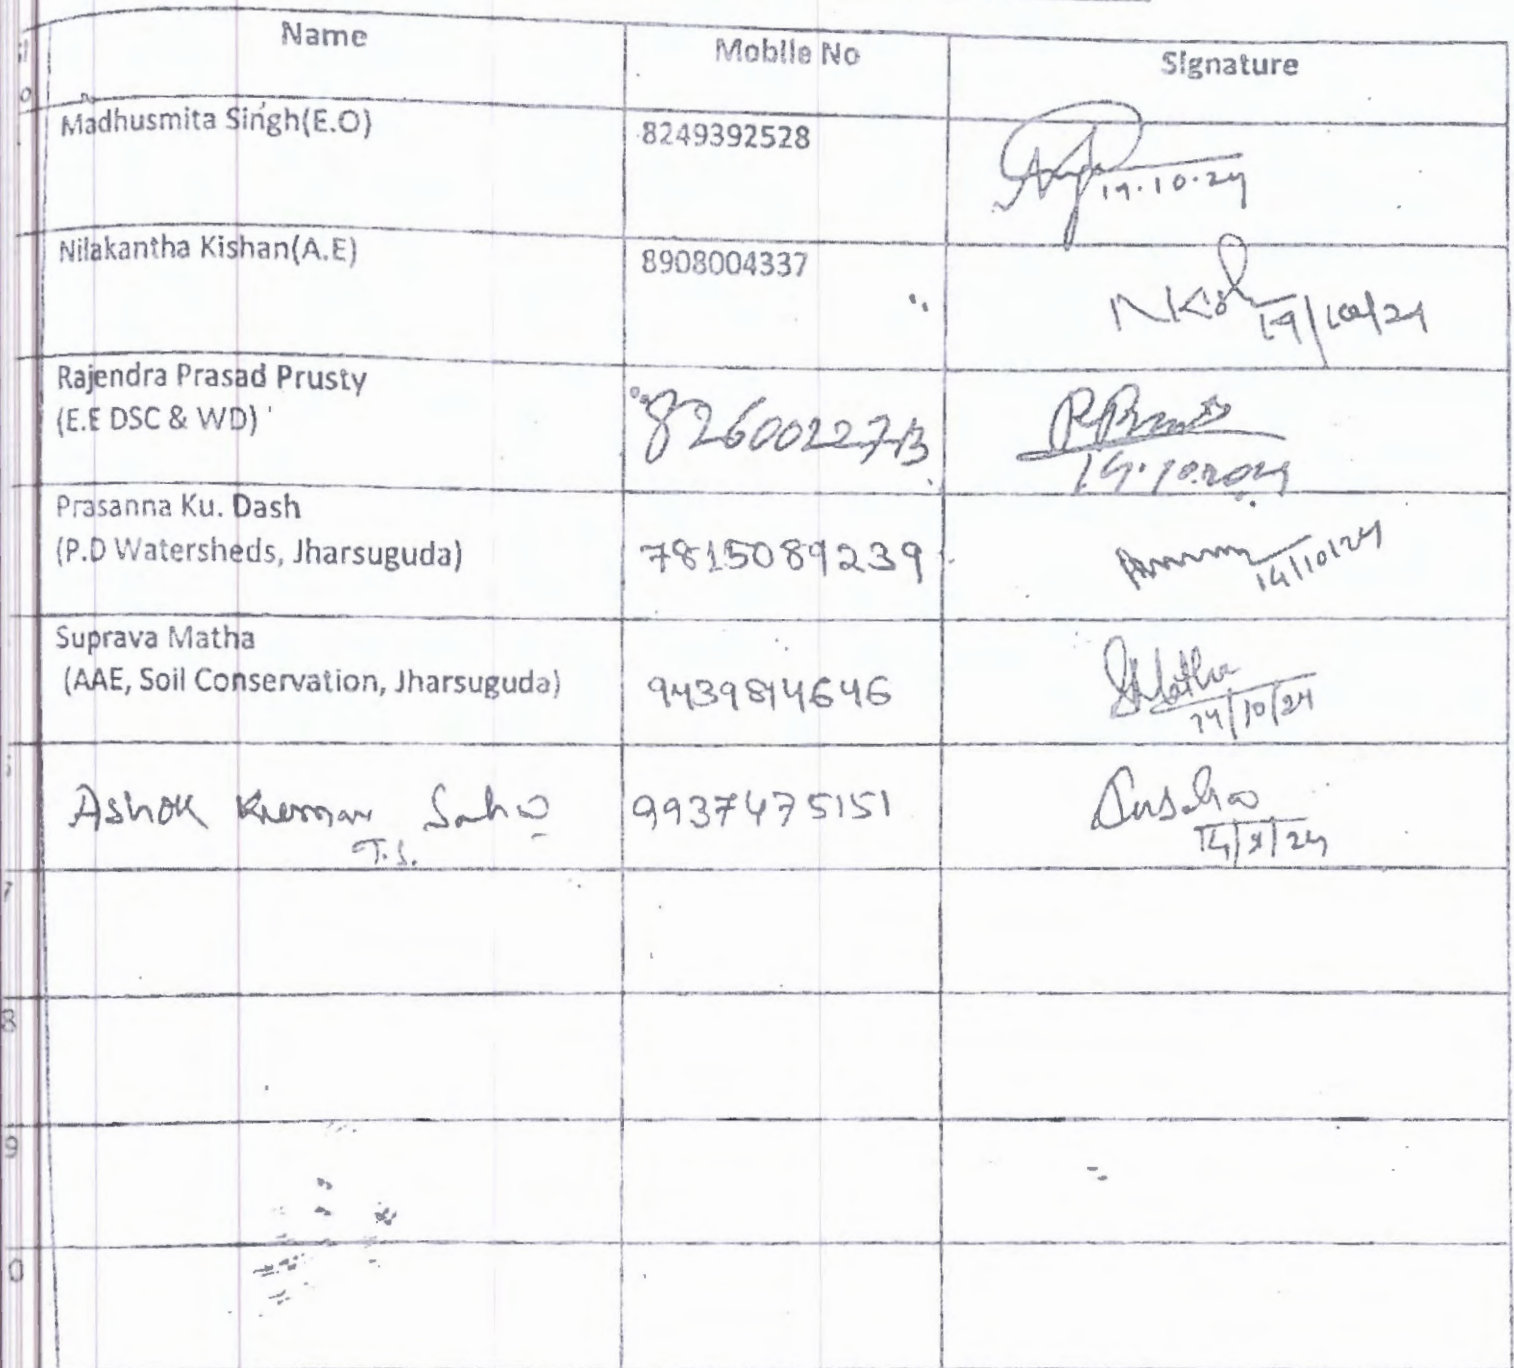 Name Mobile No Signature
Madhusmita Singh(E.O) 8249392528
19.10.24
Nilakantha Kishan(A.E) 8908004337
19/10/24
Rajendra Prasad Prusty
(E.E DSC & WD)
14.10.2024
Prasanna Ku. Dash
(P.D Watersheds, Jharsuguda) 7815089239
14/10/24
Suprava Matha
(AAE, Soil Conservation, Jharsuguda) 9439814646 SMatha
14/10/24
Ashok Kumar Sahoo 9937475151
T.S.
7
8
9
0